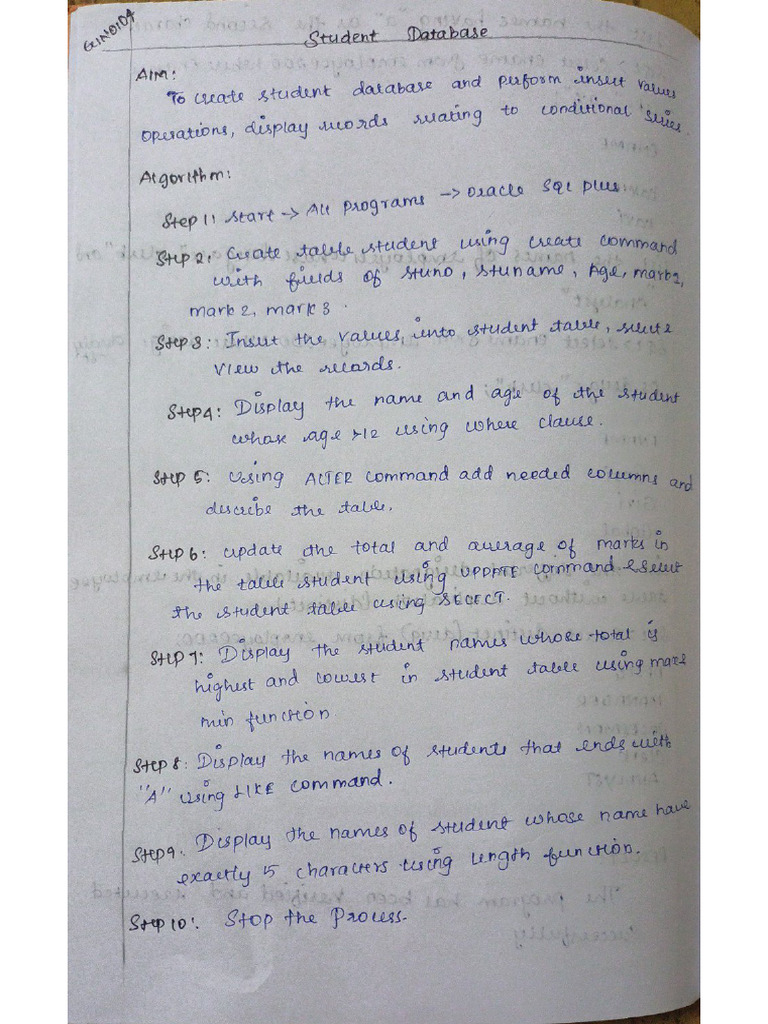 Student Database
Aim:
To create student database and perform insert values
operations, display records relating to conditional series.
Algorithm:
Step 1: Start → All programs → Oracle Sql plus.
Step 2: Create table student using create command
with fields of stuno, stuname, Age, mark2,
mark 2, mark 3.
Step 3: Insert the values into student table, select
view the records.
Step 4: Display the name and age of the student
whose age >12 using where clause.
Step 5: Using ALTER command add needed columns and
describe the table.
Step 6: update the total and average of marks in
the table student using UPDATE command & select
the student table using SELECT.
Step 7: Display the student names whose total is
highest and lowest in student table using max &
min function.
Step 8: Display the names of students that ends with
"A" using LIKE command.
Step 9. Display the names of student whose name have
exactly 5 characters using length function.
Step 10: Stop the Process.